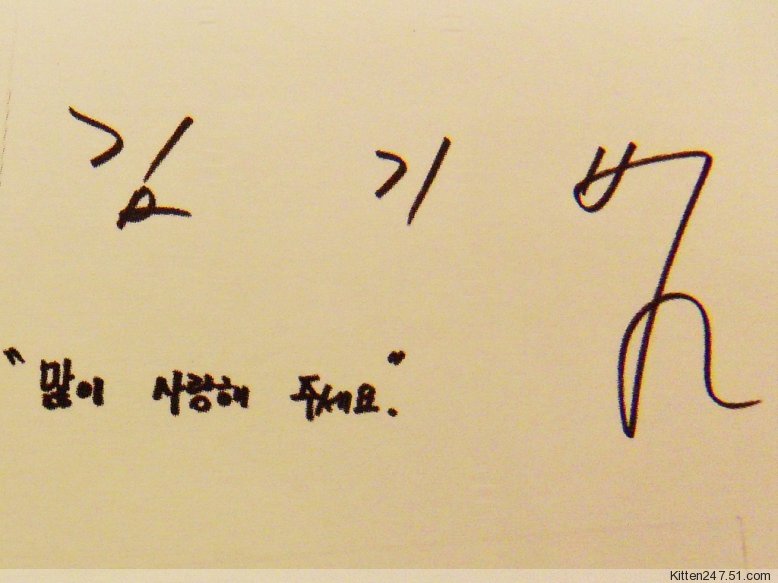 김 기 범
"많이 사랑해 주세요."
Kitten247.51.com